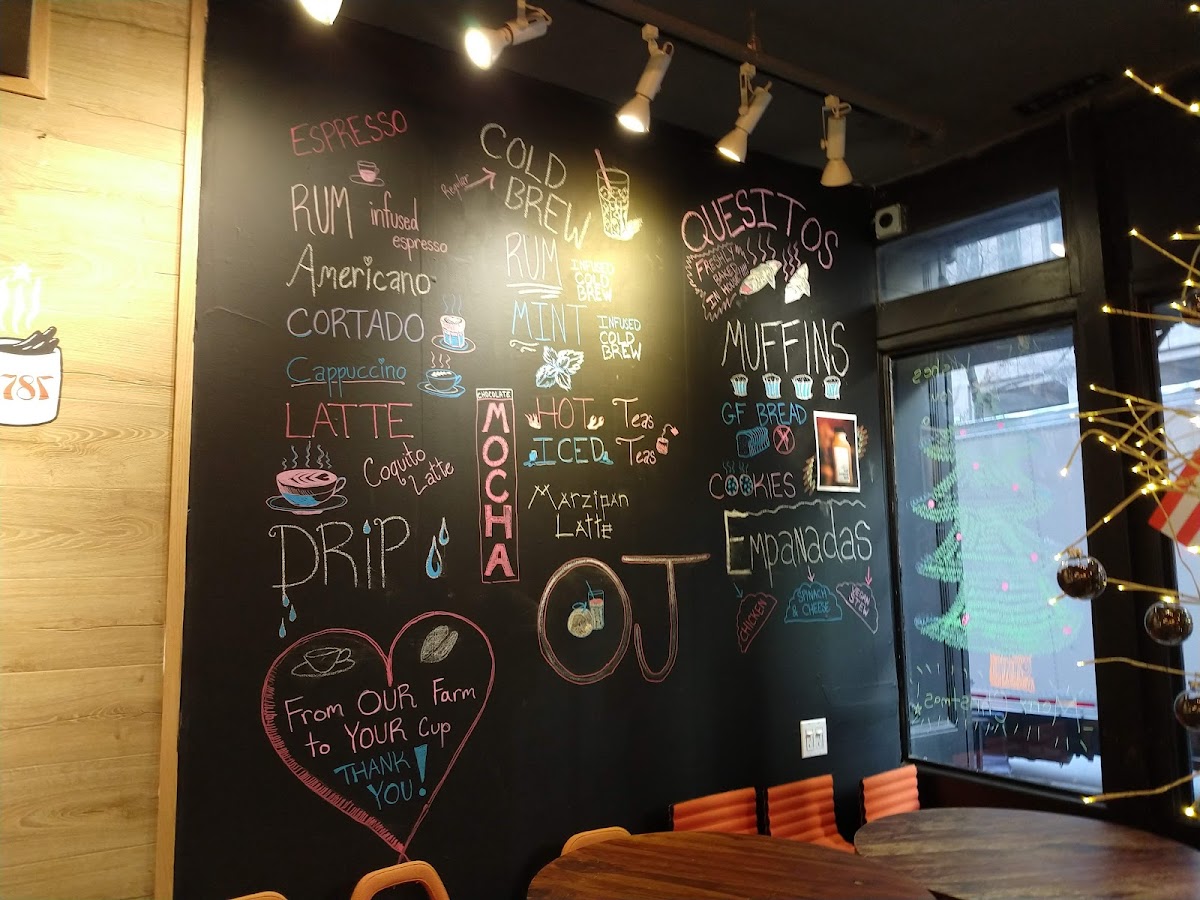 787
ESPRESSO
RUM infused
espresso
Americano
CORTADO
Cappuccino
LATTE
Coquito
Latte
DRiP
CHOCOLATE
MOCHA
From OUR Farm
to YOUR Cup
THANK
YOU!
Regular
COLD
BREW
RUM INFUSED
COLD
BREW
MINT INFUSED
COLD
BREW
HOT Teas
ICED Teas
Marzipan
Latte
OJ
QUESITOS
FRESHLY
BAKED
IN HOUSE
MUFFINS
GF BREAD
COOKIES
Empanadas
CHICKEN
SPINACH
& CHEESE
VEGAN
STEW
Merry Christmas